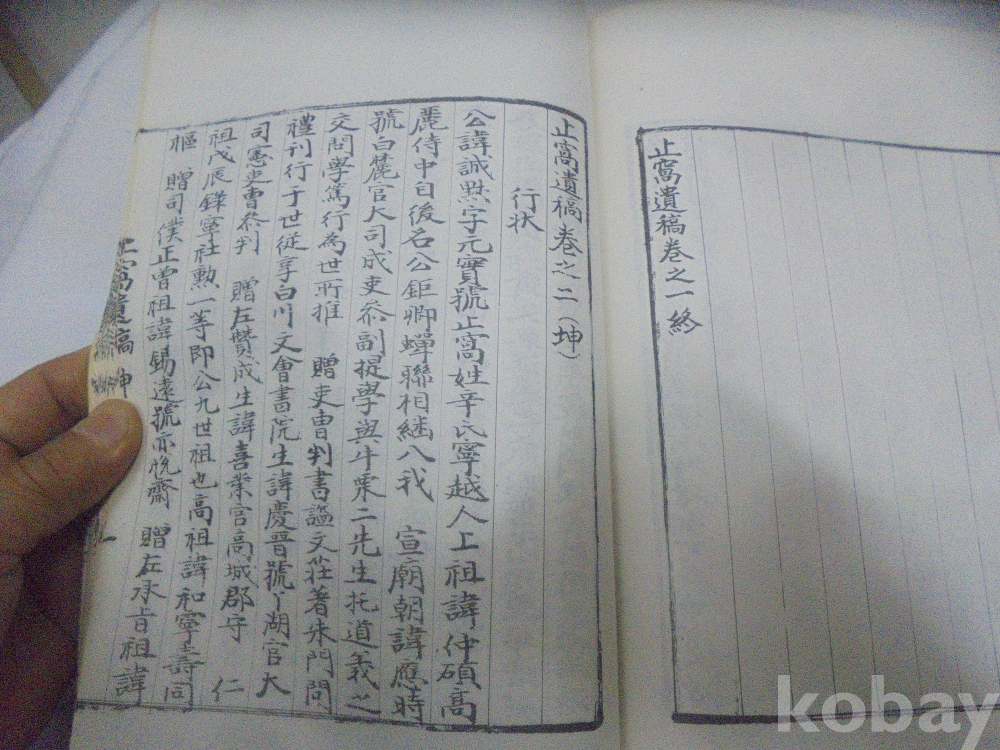 止窩遺稿卷之一終
止窩遺稿卷之二(坤)
行状
公諱誠㸃字元寶號止窩姓辛氏寧越人上祖諱仲碩高
麗侍中自後名公鉅卿蟬聯相繼入我 宣廟朝諱應時
號白麓官大司成吏參副提學與牛栗二先生托道義之
交問學篤行為世所推 贈吏曹判書謚文莊著朱門問
禮刊行于世從享白川文會書院生諱慶晉號丫湖官大
司憲吏曹參判 贈左贊成生諱喜業官高城郡守 仁
祖戊辰錄寧社勳一等即公九世祖也高祖諱和寧壽同
樞 贈司僕正曾祖諱錫遠號亦悅齋 贈左承旨祖諱
止窩遺稿 坤
kobay